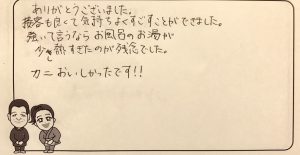 ありがとうございました。
接客も良くて気持ちよくすごすことができました。
強いて言うなら お風呂のお湯が
少し熱すぎたのが残念でした。
カニおいしかったです!!